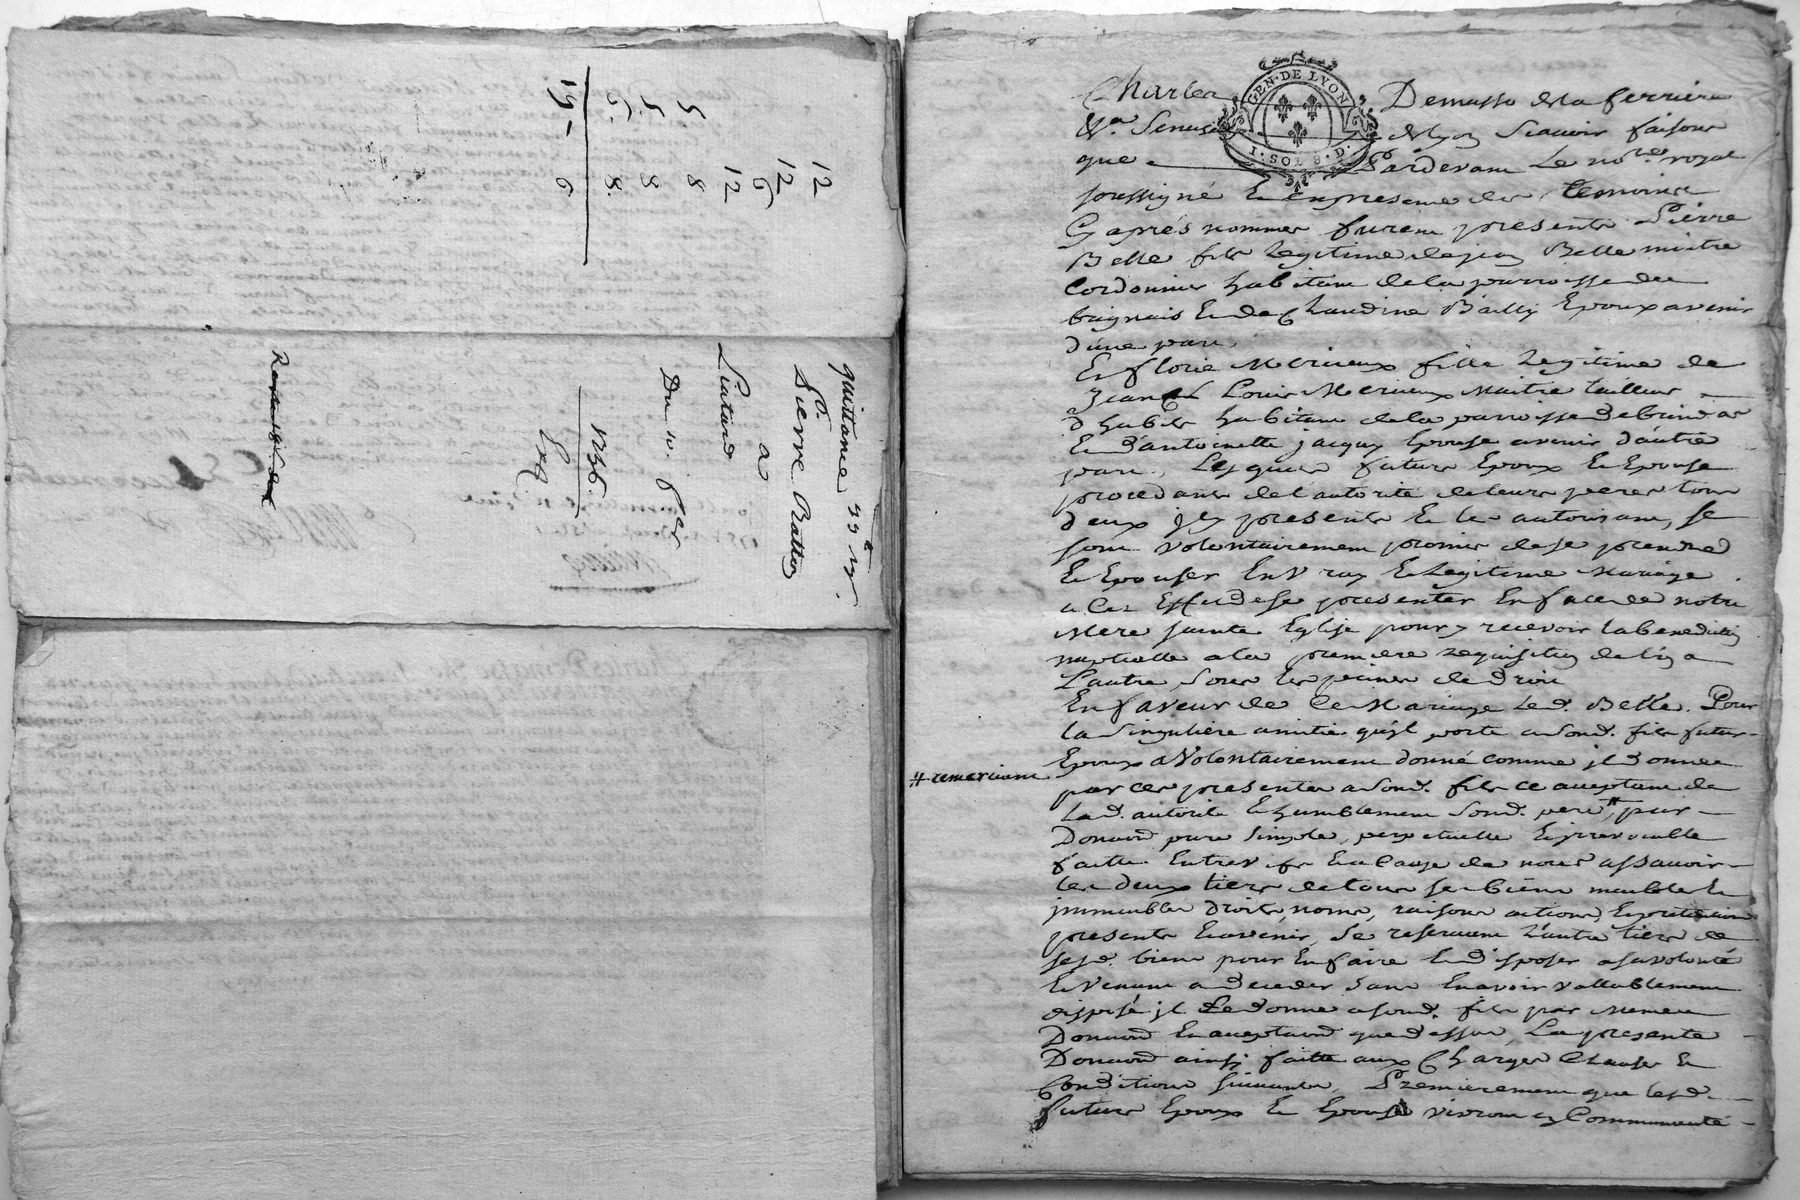 12
12
6
5 12
5. 8
6. 8
8.
15 - 6
quittance 33 ₶.
Sr. Pierre Ratton
a
Liatard
Du 10. 8bre
1736.
Charles Demasso de la ferriere
Senechal de lyon Scavoir faisons
que Pardevant Le nore royal
soussigné Et en presence des temoins
Cy aprés nommes furent presents Pierre
Belle fils legitime de jean Belle maitre
Cordonnier habitant de la parroisse de
brignais Et de Claudine Bailly Epoux avenir
d'une part,
Et florie Merieux fille legitime de
Jean Louis Merieux Maitre tailleur
d'habits habitant de la parroisse de brindas
Et d'antoinette jacquy Epouse avenir d'autre
part, Lesquels futurs Epoux Et Epouse
procedants de l'autorité de leurs peres tous
deux jcy presents Et les autorisant, se
sont volontairement promis de se prendre
Et Epouser En vray Et legitime Mariage
a Cet Effet de se presenter En face de notre
Mere sainte Eglise pour y recevoir la benediction
nuptialle a la premiere requisition de l'un a
L'autre, sous les peines de droit
En faveur de Ce Mariage Led. Belle. Pour
la singuliere amitié qu'jl porte a sond. fils futur
Epoux a volontairement donné comme jl donne
par ces presentes a sond. fils ce acceptant de
lad. autorité Et humblement sond. pere, # par
# remerciant
Donnaōn pure simple, perpetuelle Et jrrevocable
faitte Entre vifs Et a Cause de noces assavoir
les deux tiers de tous ses biens meubles Et
jmmeubles droits, noms, raisons actions, Et pretentions
presents Et avenir, se reservant l'autre tiers de
sesd. biens pour En faire Et disposer a sa volonté
Et venant a deceder sans En avoir vallablement
disposé jl Le donne a sond. fils par Meme
Donnaōn Et acceptaōn que dessus, La presente
Donnaōn ainsy faitte aux Charges Clauses Et
Conditions suivantes, Premierement que lesd.
futurs Epoux Et Epouse vivront en Communauté
GEN. DE LYON
1. SOL 8. D.